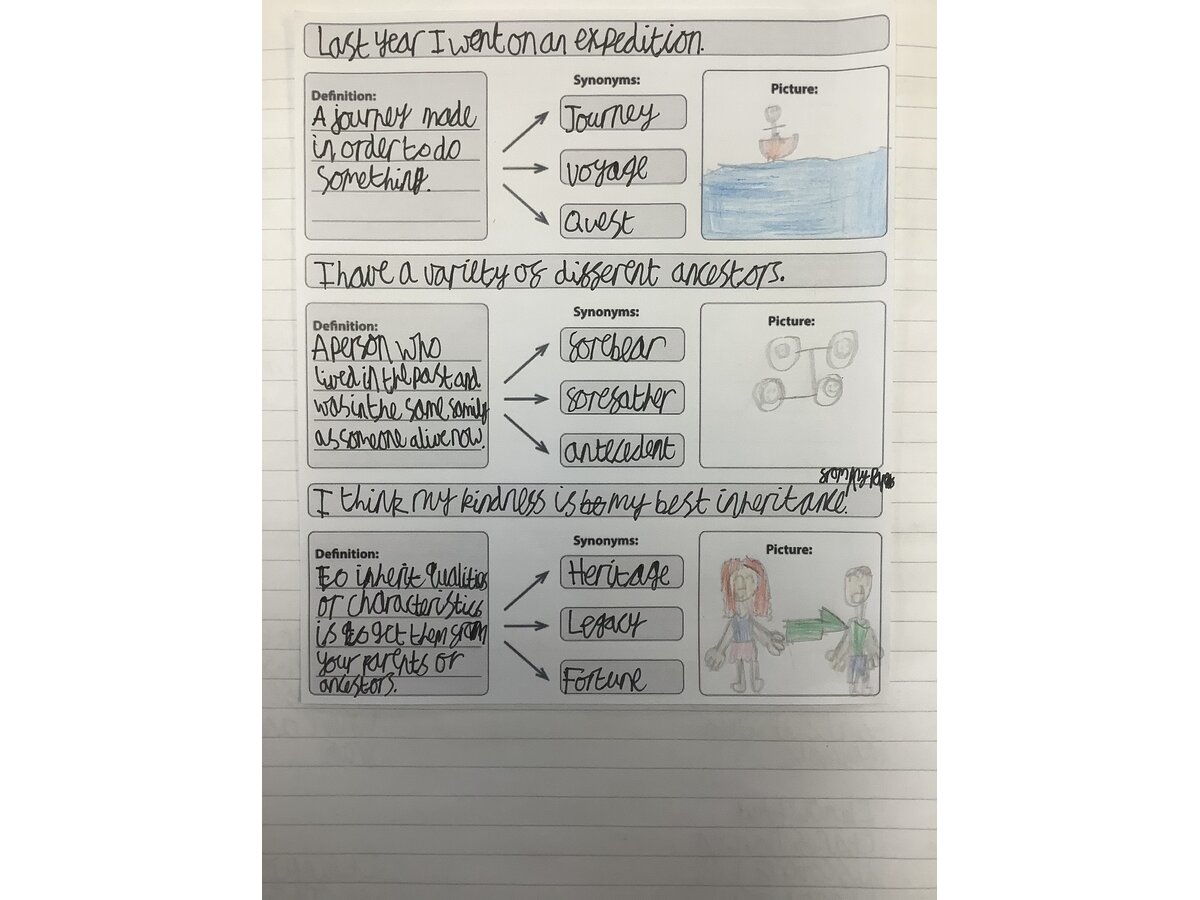 Last year I went on an expedition.
Definition:
A journey made
in order to do
something.
Synonyms:
Journey
voyage
Quest
Picture:
I have a variety of different ancestors.
Definition:
A person who
lived in the past and
was in the same family
as someone alive now.
Synonyms:
forebear
forefather
antecedent
Picture:
from my
I think my kindness is my best inheritance.
Definition:
to inherit qualities
or characteristics
is to get them from
your parents or
ancestors.
Synonyms:
Heritage
Legacy
Fortune
Picture: